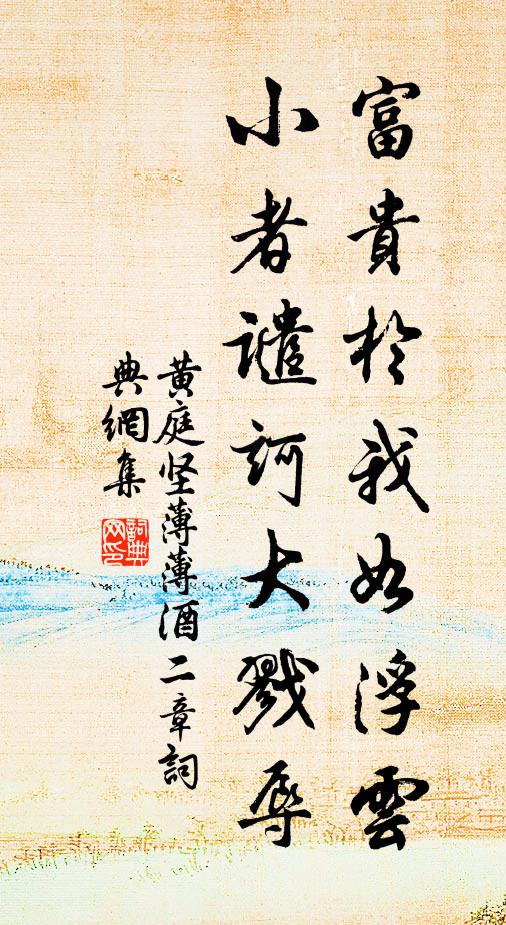 富貴於我如浮雲
小者譴訶大戮辱
黃庭坚薄薄酒二章詞
典網集
詞典
网印